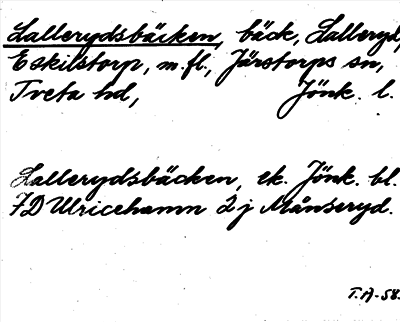 Lallerydsbäcken, bäck, Lalleryd,
Eskilstorp, m.fl., Järstorps sn,
Tveta hd, Jönk. l.
Lallerydsbäcken, ek. Jönk. bl.
7D Ulricehamn 2j Månseryd.
T.A-58.